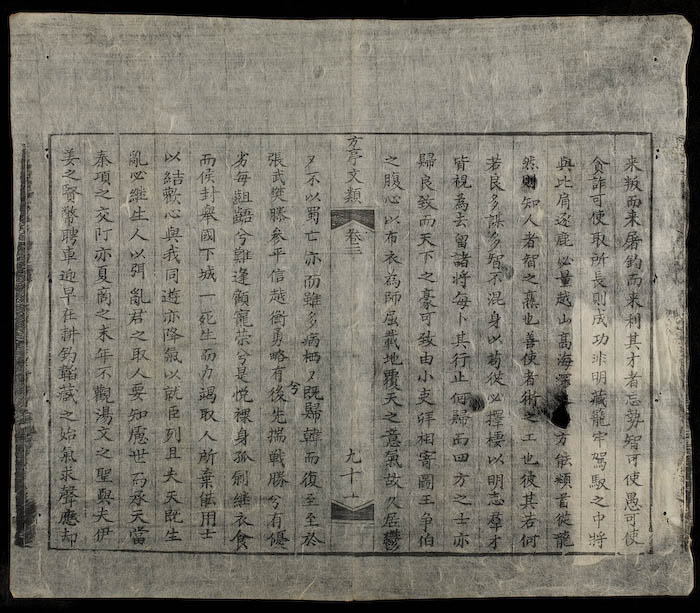 來叛而来屠釣而来利其才者忘勢智可使愚可使
貪詐可使取所長則成功非明藏籠牢駕馭之中將
與此肩逐鹿必量越山高海深方能頫首從龍
然則知人者智之為也善使者術之工也彼其若何
若良多謀多智不混身以苟從必擇棲以明志群才
皆視為去留諸將每卜其行止何歸而四方之士亦
歸良致而天下之豪可致由小吏拜相寄圖王争伯
之腹心以布衣為師屈載地覆天之意氣故久居鬱
夕不以蜀亡亦而雖多病栖兮既歸韓而復至至於
張武樊滕參平信越衝勇略有後先揣戰勝兮有優
劣每齟齬兮難逢顧寵荣兮是悦裸身孤劍継衣食
而侯封舉國下城一死生而力竭取人所棄僦用士
以結歡心與我同遊亦降氣以就臣列且夫天既生
亂必継生人以弭亂君之取人要知應世而承天當
秦項之交阿亦夏商之末年不觀湯文之聖與夫伊
姜之賢幣聘車迎早在耕釣韜藏之始氣求聲應却
方亭文類
卷三
九十